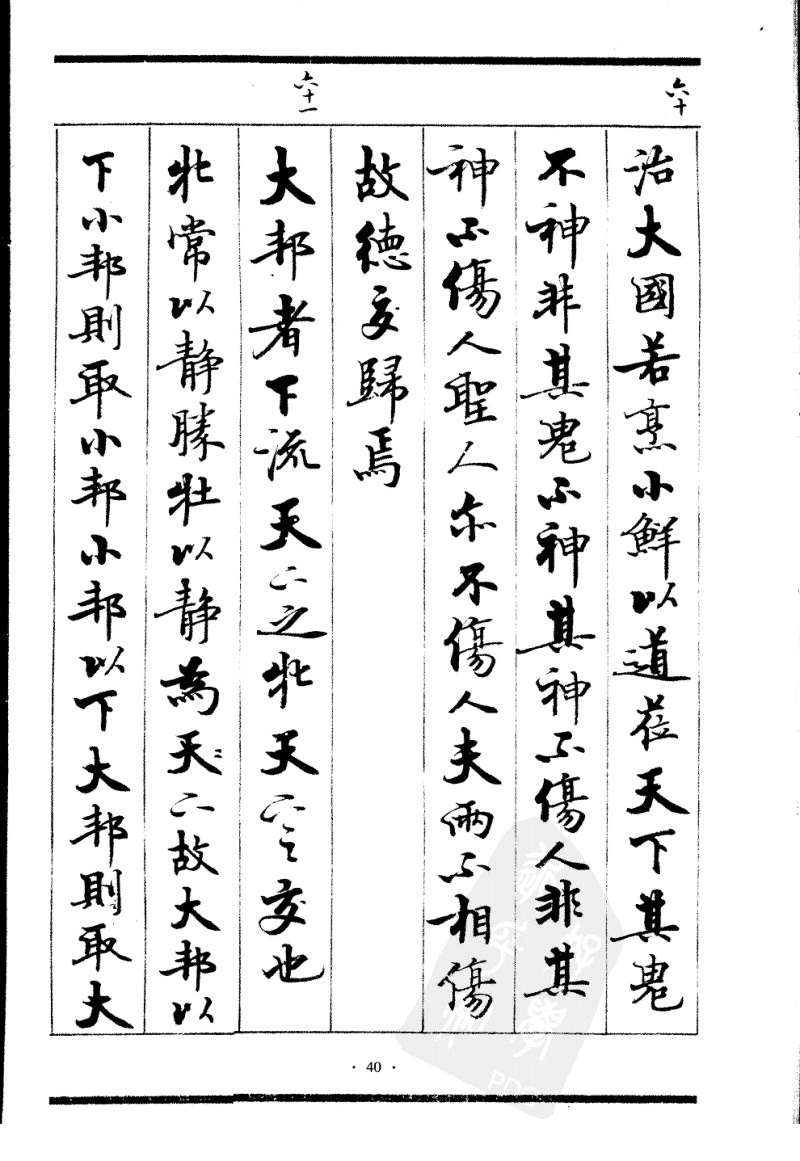 六十
治大國若烹小鮮以道莅天下其鬼
不神非其鬼不神其神不傷人非其
神不傷人聖人亦不傷人夫兩不相傷
故德交歸焉
六十一
大邦者下流天下之牝天下之交也
牝常以静勝牡以静為天下故大邦以
下小邦則取小邦小邦以下大邦則取大
· 40 ·